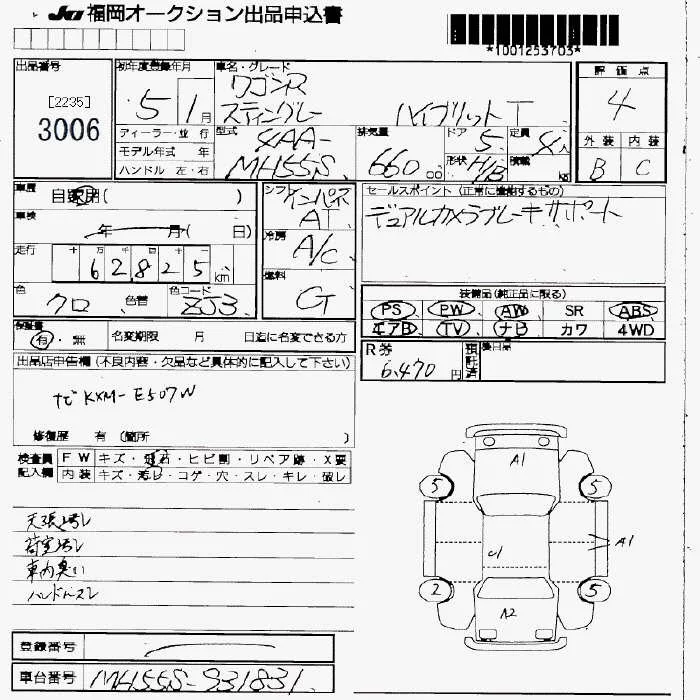 JU 福岡オークション出品申込書
*1001253703*
出品番号
[2235]
3006
初年度登録年月
5 1月
車名・グレード
ワゴンR
スティングレー ハイブリットT
評価点
4
ディーラー・並行
モデル年式 年
ハンドル 左・右
型式
4AA-
MH55S
排気量
660 cc
ドア 5
形状 H/B
定員 4人
積載 kg
外装 内装
B C
車歴
自家用( )
車検
年 月( 日)
走行
十 万 千 百 十
6 2 8 2 5 km
色
クロ
色替
色コード
ZJ3
シフト
インパネ
AT
冷房
A/C
燃料
G
セールスポイント(正常に機動するもの)
デュアルカメラブレーキサポート
装備品(純正品に限る)
PS PW AW SR ABS
エアB TV ナビ カワ 4WD
保証書
有・無
名変期限 月 日迄に名変できる方
R券
6,470円
預託済
出品店申告欄(不良内容・欠品など具体的に記入して下さい)
ナビ KXM-E507W
修復歴 有(箇所 )
検査員 FW キズ・飛石・ヒビ割・リペア跡・X要
記入欄 内装 キズ・汚レ・コゲ・穴・スレ・キレ・破レ
天張汚レ
荷室汚レ
車内臭い
ハンドルスレ
A1
5 5
U1 A1
2 5
A2
登録番号
車台番号 MH55S-931831